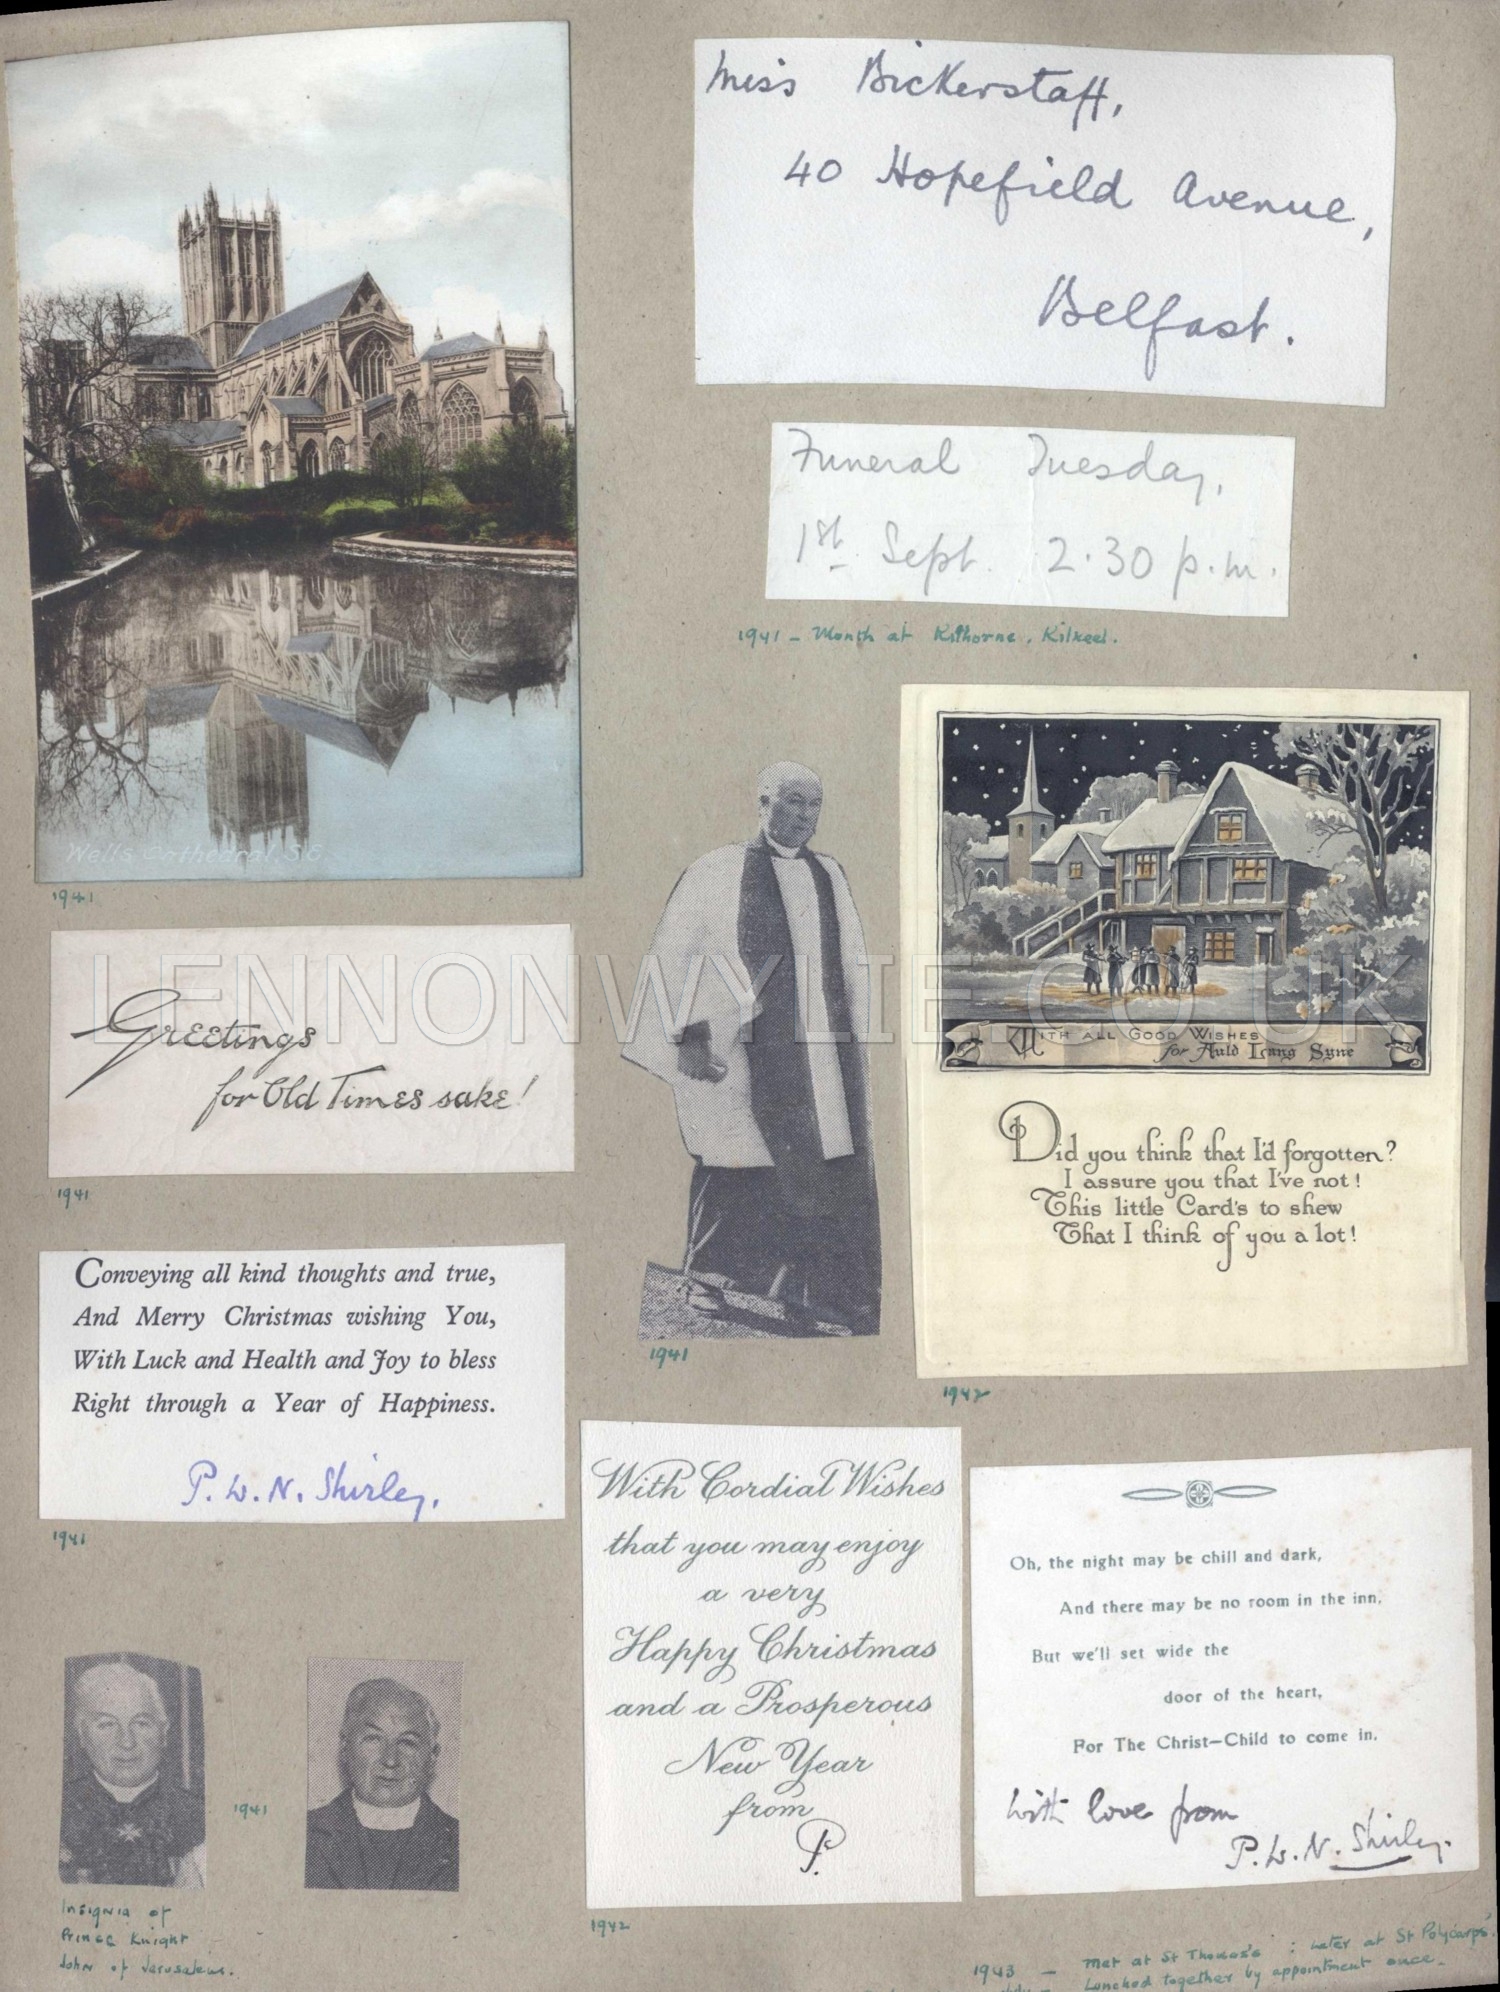 Miss Bickerstaff,
40 Hopefield Avenue,
Belfast.
Funeral Tuesday,
1st Sept. 2.30 p.m.
1941 - Month at Kilhorne, Kilkeel.
Wells Cathedral. S.E
1941
LENNONWYLIE.CO.UK
Greetings
for Old Times sake!
1941
WITH ALL GOOD WISHES
for Auld Lang Syne
Did you think that I'd forgotten?
I assure you that I've not!
This little Card's to shew
That I think of you a lot!
1942
1941
Conveying all kind thoughts and true,
And Merry Christmas wishing You,
With Luck and Health and Joy to bless
Right through a Year of Happiness.
P. W. N. Shirley.
1941
With Cordial Wishes
that you may enjoy
a very
Happy Christmas
and a Prosperous
New Year
from
P.
1942
Oh, the night may be chill and dark,
And there may be no room in the inn,
But we'll set wide the
door of the heart,
For The Christ-Child to come in.
with love from
P. W. N. Shirley.
1941
Insignia of
Prince Knight
John of Jerusalem.
1943 - Met at St Thomas's : Later at St Polycarps'.
Lunched together by appointment once.